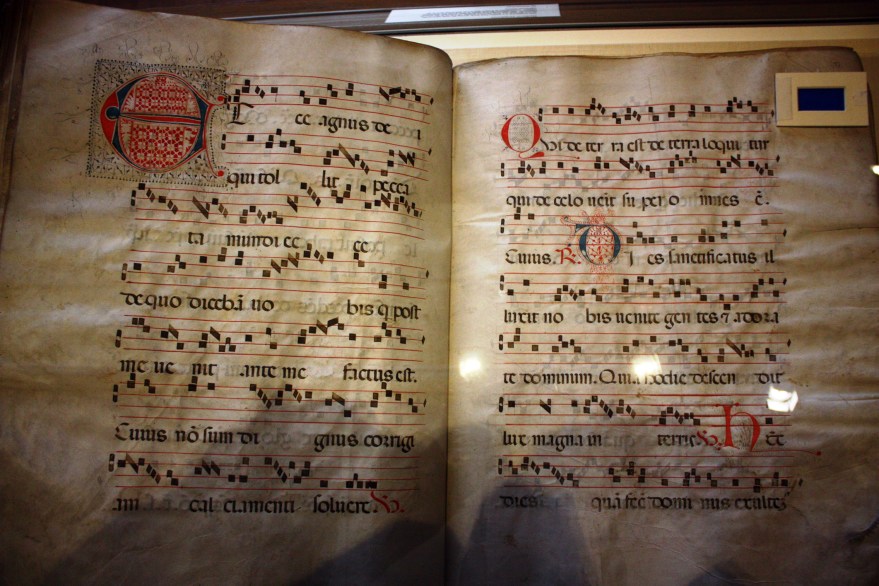 Ecce agnus de i
qui tol lit pecca
ta mundi ec ce
de quo dicebā uo bis q̄ post
me ue nit ante me factus est.
Cuius nō sum di gnus corrigi
am cal ciamenti soluere. ℣.
Qui de ter ra est de terra loqui tur
qui de celo uenit su per o mnes ē.
Cuius. ℟. Di es sanctificatus il
luxit no bis uenite gen tes ⁊ adora
te dominum. Quia hodie descen dit
lux magna in terris ℣. Hec
dies quā fec̄ domi nus exulte